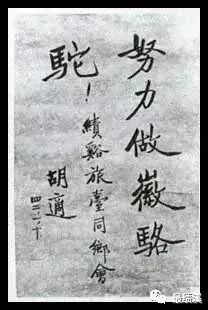 努力做徽駱
駝！
績谿旅臺同鄉會
胡適
最绩溪